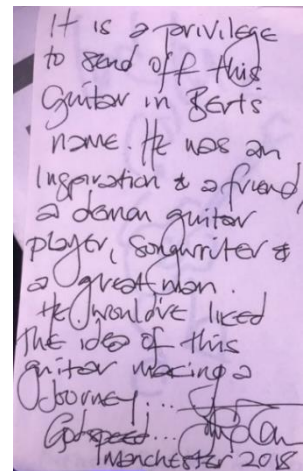 It is a privilege
to send off this
guitar in Bert's
name. He was an
inspiration & a friend,
a demon guitar
player, songwriter &
a great man.
He would've liked
the idea of this
guitar making a
Journey...
Godspeed...
Manchester 2018